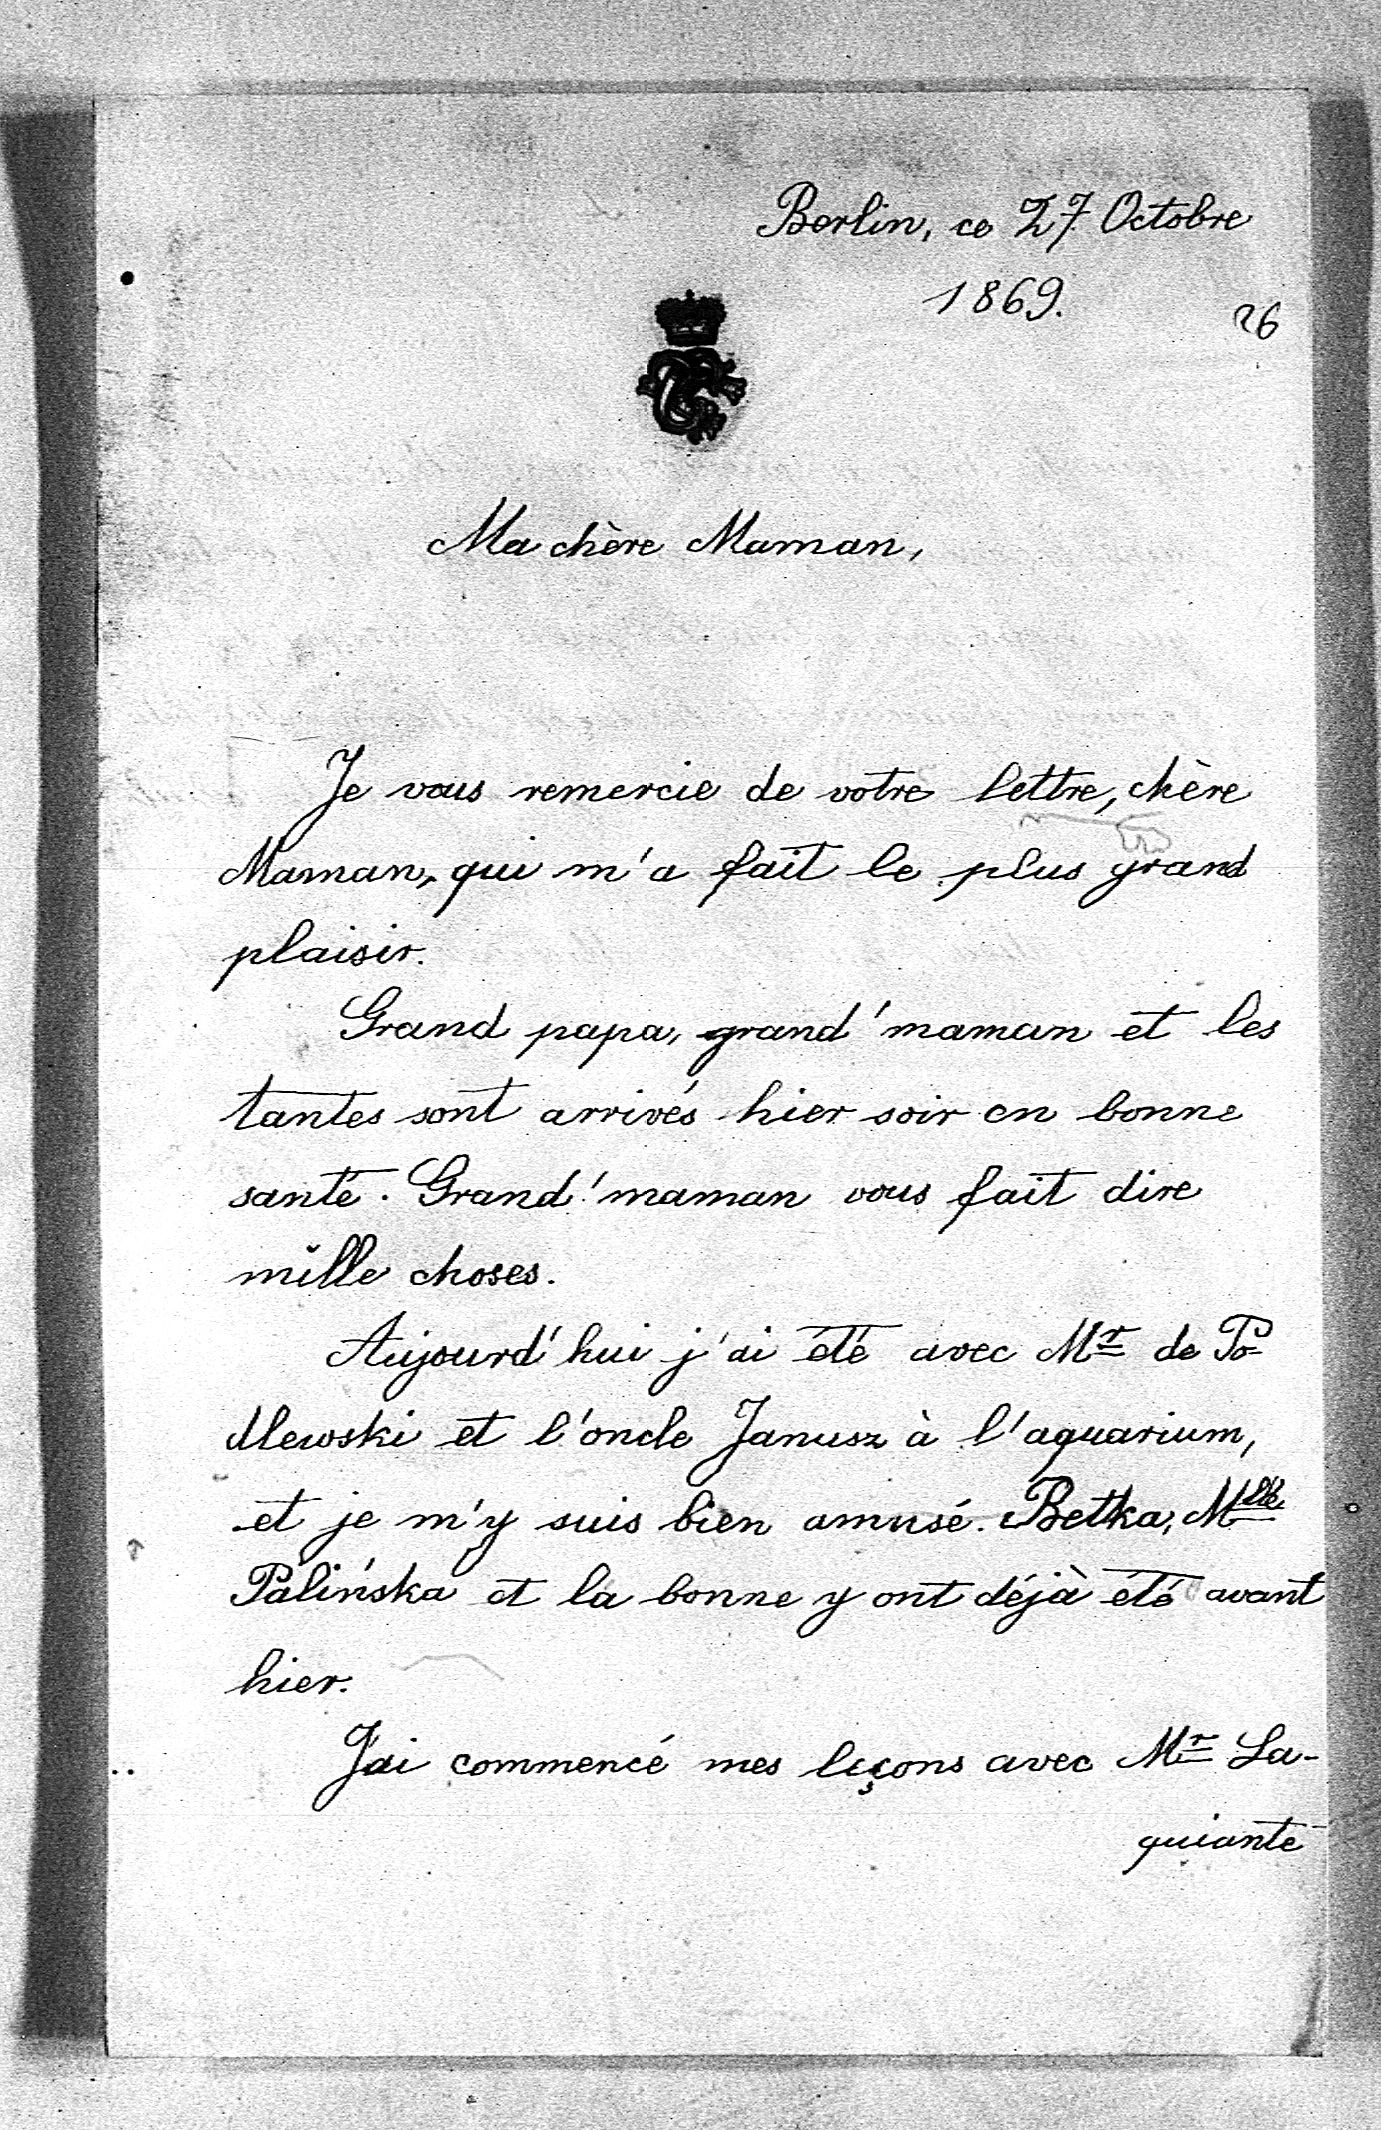 Berlin, ce 27 Octobre
1869.
26
Ma chère Maman,
Je vous remercie de votre lettre, chère
Maman, qui m'a fait le plus grand
plaisir.
Grand papa, grand'maman et les
tantes sont arrivés hier soir en bonne
santé. Grand'maman vous fait dire
mille choses.
Aujourd'hui j'ai été avec Mr de Po-
dlewski et l'oncle Janusz à l'aquarium,
et je m'y suis bien amusé. Betka, Mlle
Palińska et la bonne y ont déjà été avant
hier.
J'ai commencé mes leçons avec Mr La-
quiante